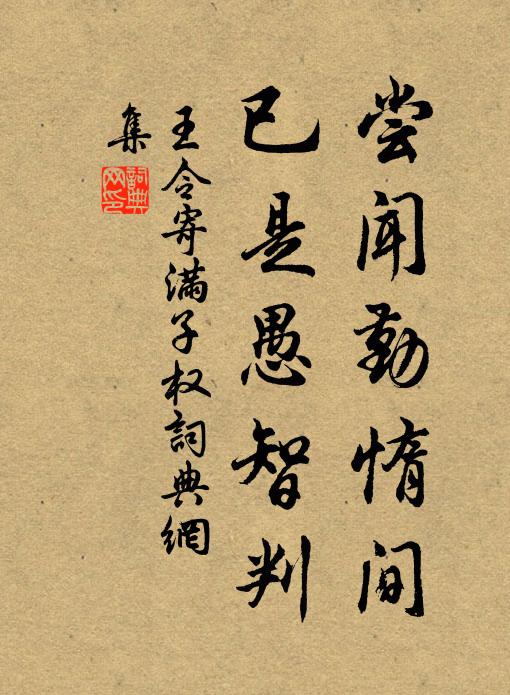 尝闻勤惰间
已是愚智判
王令寄满子权词典網
集
詞典
网印